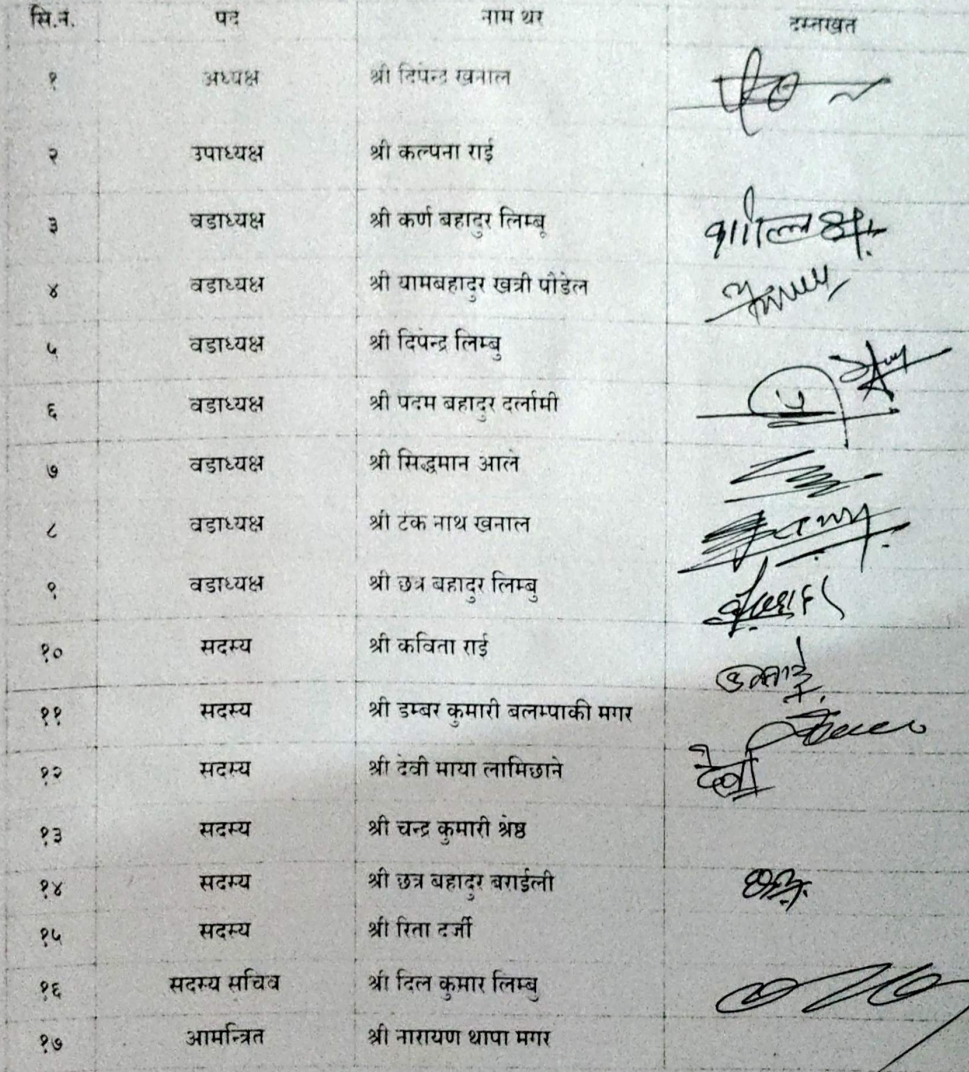 सि.नं. पद नाम थर दस्तखत
१ अध्यक्ष श्री दिपेन्द्र खनाल
२ उपाध्यक्ष श्री कल्पना राई
३ वडाध्यक्ष श्री कर्ण बहादुर लिम्बू
४ वडाध्यक्ष श्री यामबहादुर खत्री पौडेल
५ वडाध्यक्ष श्री दिपेन्द्र लिम्बु
६ वडाध्यक्ष श्री पदम बहादुर दर्लामी
७ वडाध्यक्ष श्री सिद्धमान आले
८ वडाध्यक्ष श्री टंक नाथ खनाल
९ वडाध्यक्ष श्री छत्र बहादुर लिम्बु
१० सदस्य श्री कविता राई
११ सदस्य श्री डम्बर कुमारी बलम्पाकी मगर
१२ सदस्य श्री देवी माया लामिछाने देवी
१३ सदस्य श्री चन्द्र कुमारी श्रेष्ठ
१४ सदस्य श्री छत्र बहादुर बराईली
१५ सदस्य श्री रिता दर्जी
१६ सदस्य सचिव श्री दिल कुमार लिम्बु
१७ आमन्त्रित श्री नारायण थापा मगर